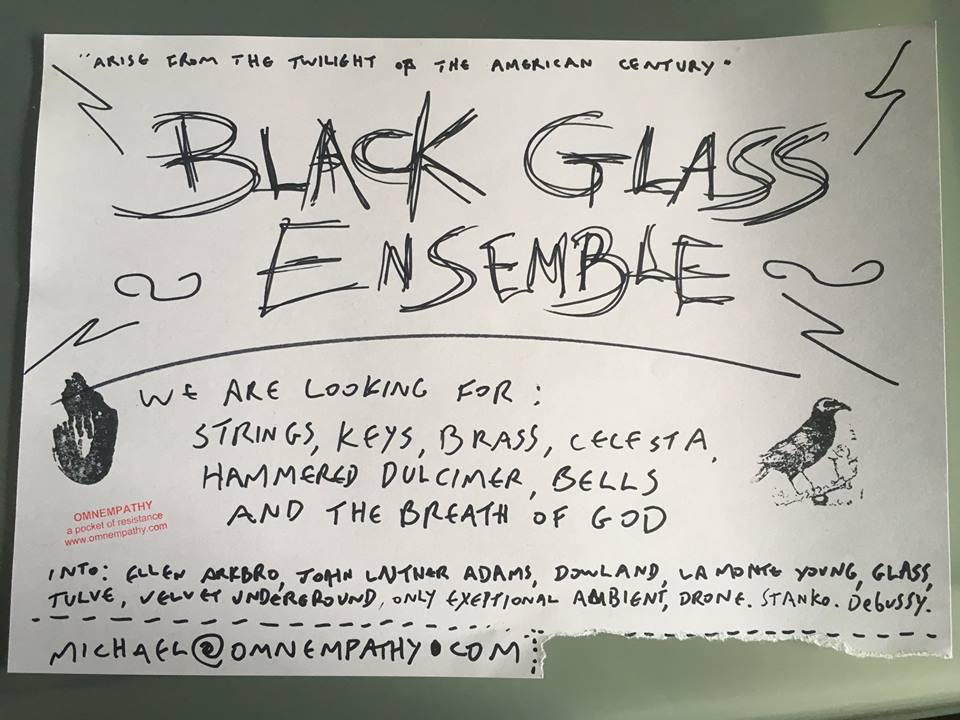 "ARISE FROM THE TWILIGHT OF THE AMERICAN CENTURY"
BLACK GLASS
ENSEMBLE
WE ARE LOOKING FOR:
STRINGS, KEYS, BRASS, CELESTA,
HAMMERED DULCIMER, BELLS
AND THE BREATH OF GOD
OMNEMPATHY
a pocket of resistance
www.omnempathy.com
INTO: ELLEN ARKBRO, JOHN LUTHER ADAMS, DOWLAND, LA MONTE YOUNG, GLASS,
TULVE, VELVET UNDERGROUND, ONLY EXEPTIONAL AMBIENT, DRONE. STANKO. DEBUSSY.
MICHAEL@OMNEMPATHY.COM